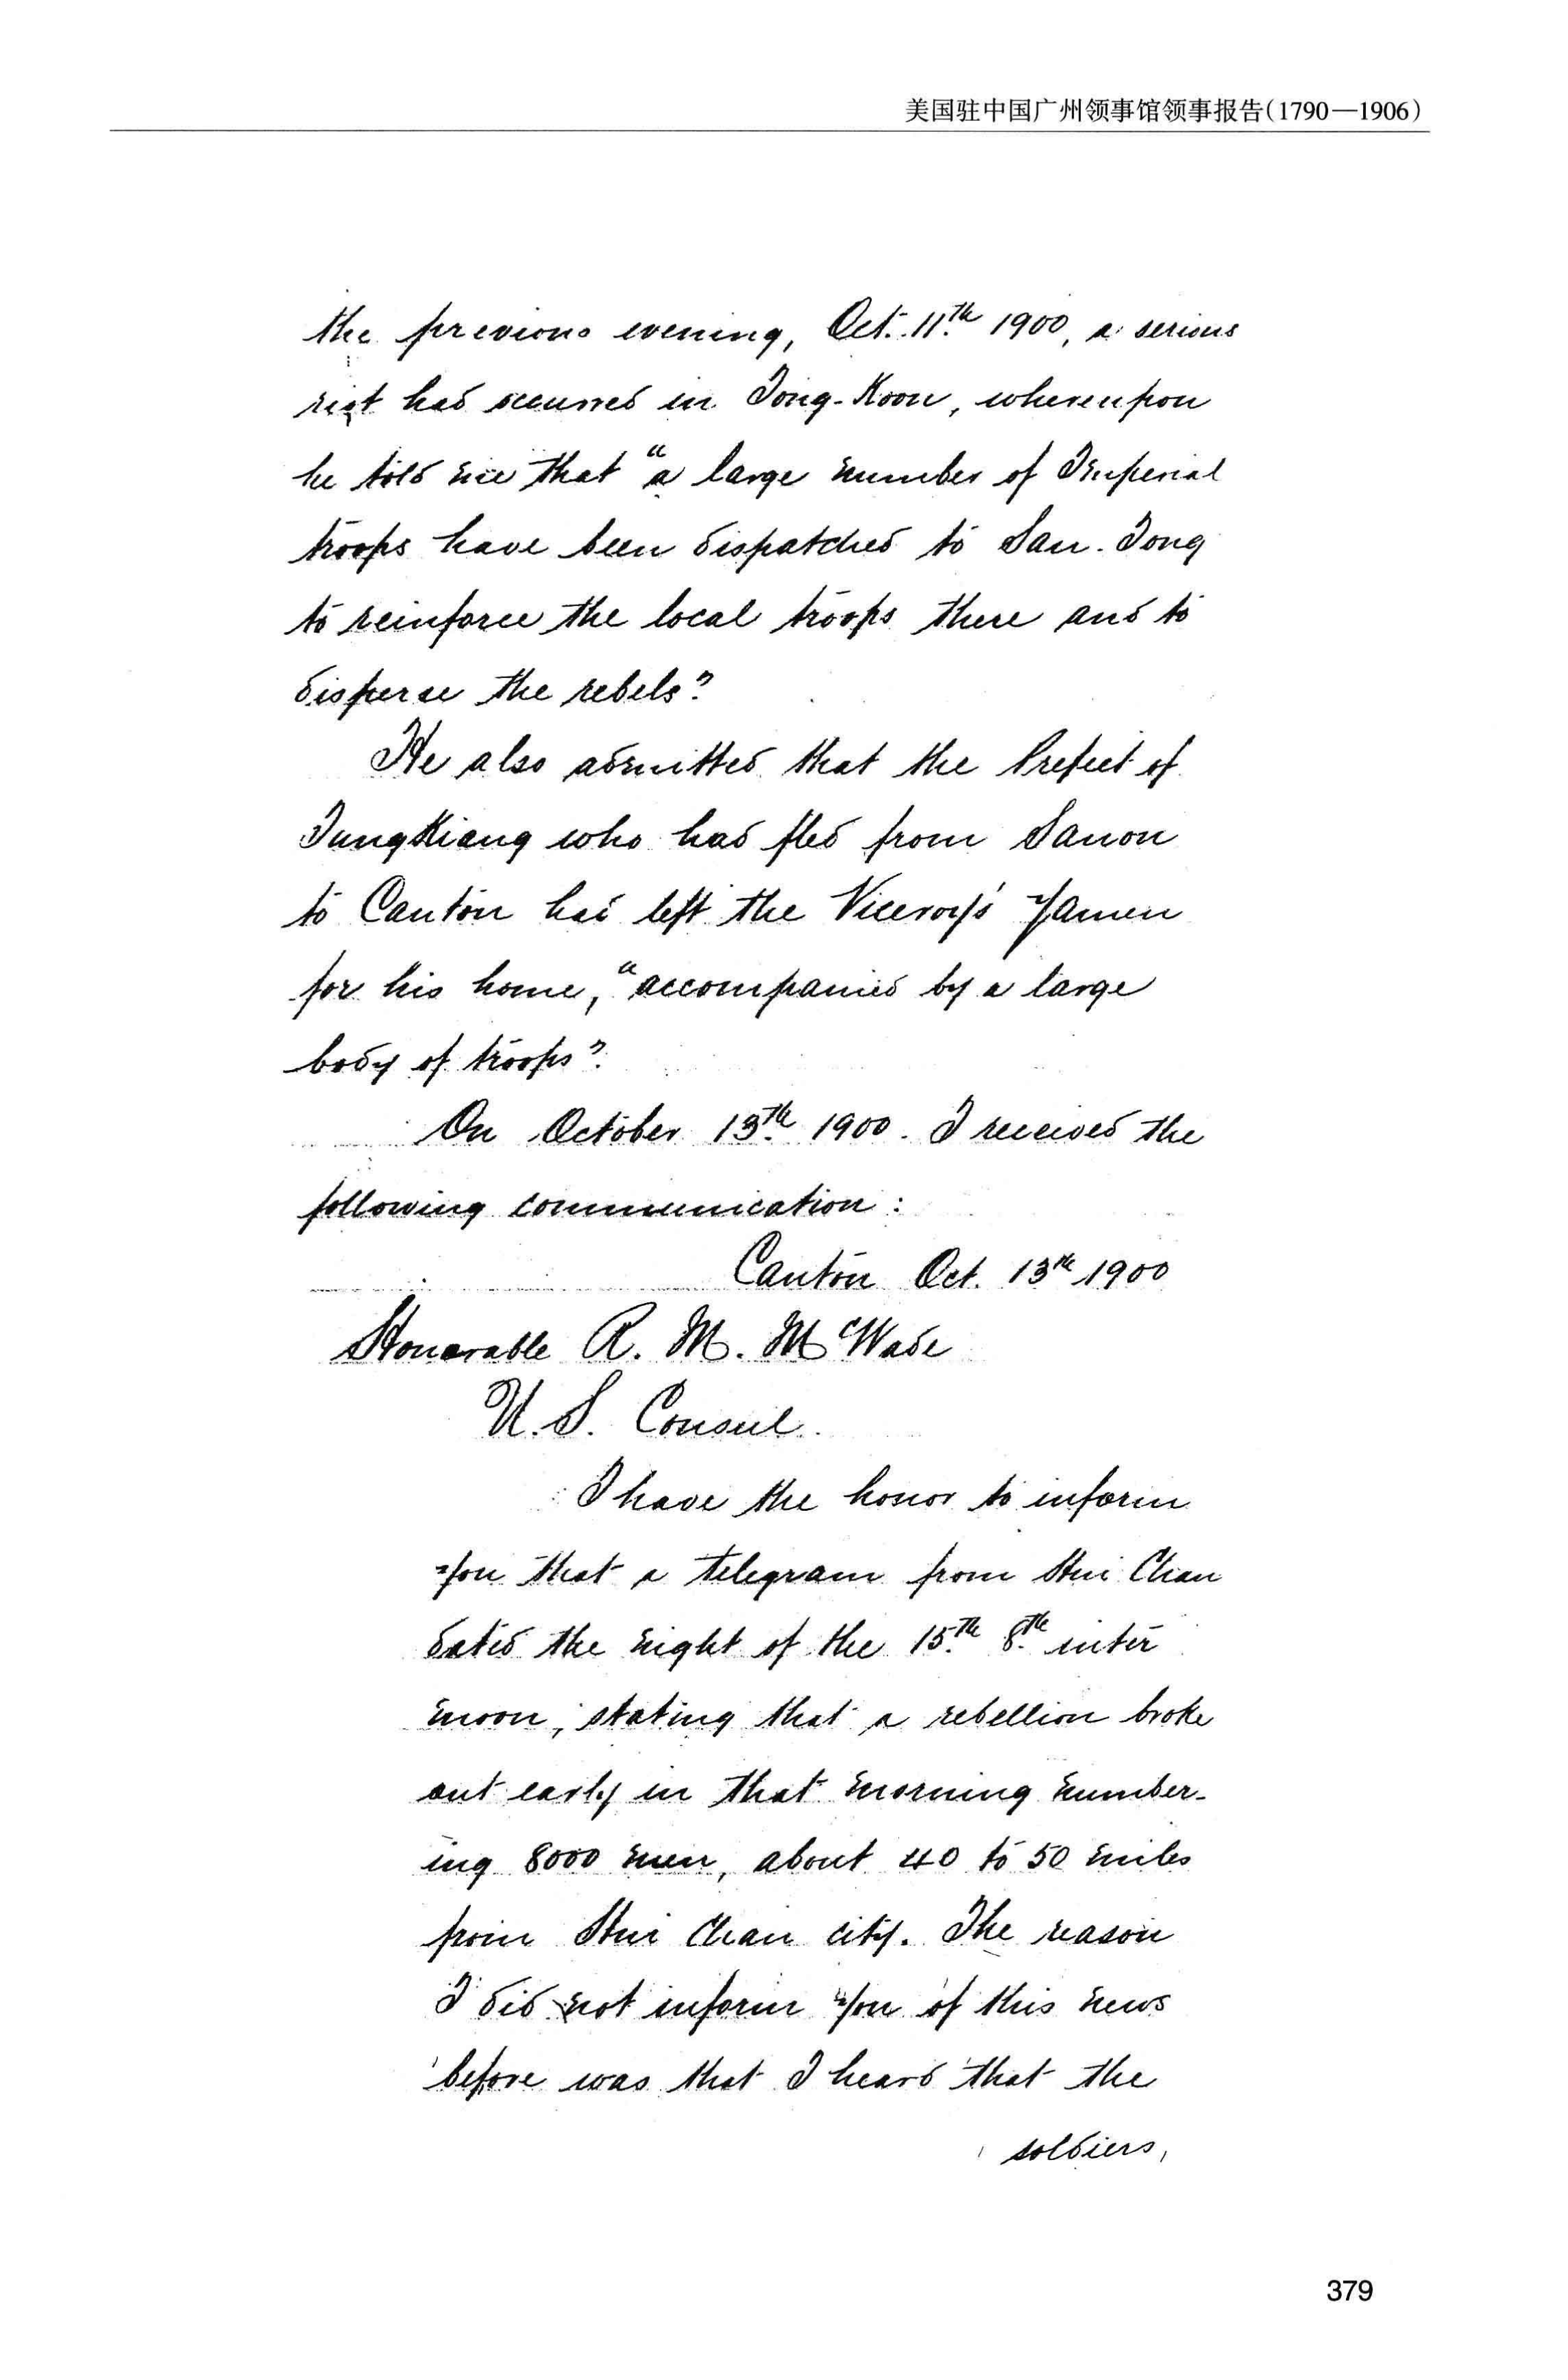 美国驻中国广州领事馆领事报告(1790—1906)
the previous evening, Oct. 11th 1900, a serious
riot had occurred in Tong-Koon, whereupon
he told me that "a large number of Imperial
troops have been dispatched to San-Tong
to reinforce the local troops there and to
disperse the rebels".
He also admitted that the Prefect of
TungKiang who had fled from Sanon
to Canton had left the Viceroy's Yamen
for his home, "accompanied by a large
body of troops".
On October 13th 1900. I received the
following communication:
Canton Oct. 13th 1900
Honorable R. M. McWade
U. S. Consul.
I have the honor to inform
you that a telegram from Hui Chau
dated the night of the 15th 8th inter
moon, stating that a rebellion broke
out early in that morning number-
ing 8000 men, about 40 to 50 miles
from Hui Chau city. The reason
I did not inform you of this news
before was that I heard that the
soldiers,
379